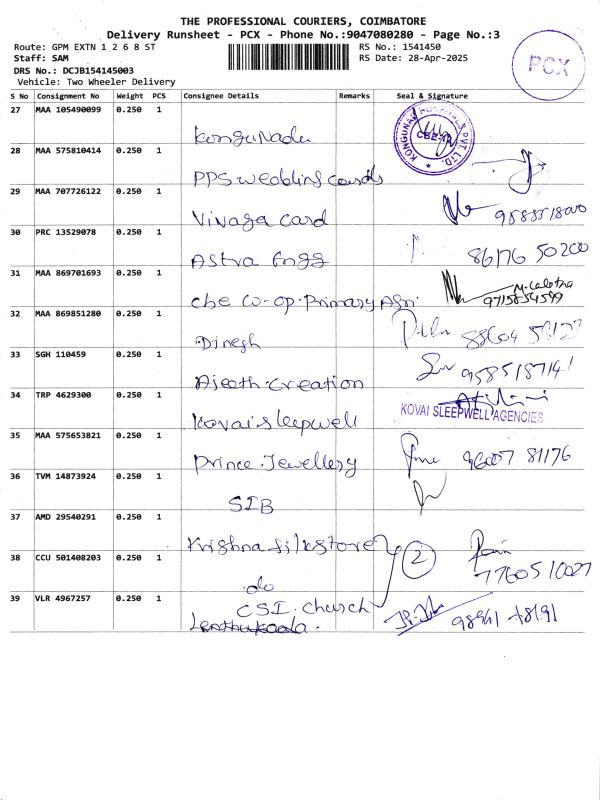 THE PROFESSIONAL COURIERS, COIMBATORE
Delivery Runsheet - PCX - Phone No.:9047080280 - Page No.:3
Route: GPM EXTN 1 2 6 8 ST
RS No.: 1541450
Staff: SAM
RS Date: 28-Apr-2025
DRS No.: DCJB154145003
Vehicle: Two Wheeler Delivery
PCX
S No Consignment No Weight PCS Consignee Details Remarks Seal & Signature
27 MAA 105490099 0.250 1
KonguNadu
KONGUNAD HOSPITALS PVT. LTD.
CBE-12
28 MAA 575810414 0.250 1
PPS wedding cards
29 MAA 707726122 0.250 1
Vinaga card
30 PRC 13529078 0.250 1
Astra Engg 86176 50200
31 MAA 869701693 0.250 1
Cbe Co-op. Primary Agri.
32 MAA 869851280 0.250 1
Dinesh
33 SGH 110459 0.250 1
Ajeeth creation 9585187141
34 TRP 4629300 0.250 1
Kovai sleepwell
KOVAI SLEEPWELL AGENCIES
35 MAA 575653821 0.250 1
Prince Jewellery 96007 81176
36 TVM 14873924 0.250 1
SIB
37 AMD 29540291 0.250 1
Krishna silk store 2
38 CCU 501408203 0.250 1
do 7760510027
39 VLR 4967257 0.250 1
CSI. church